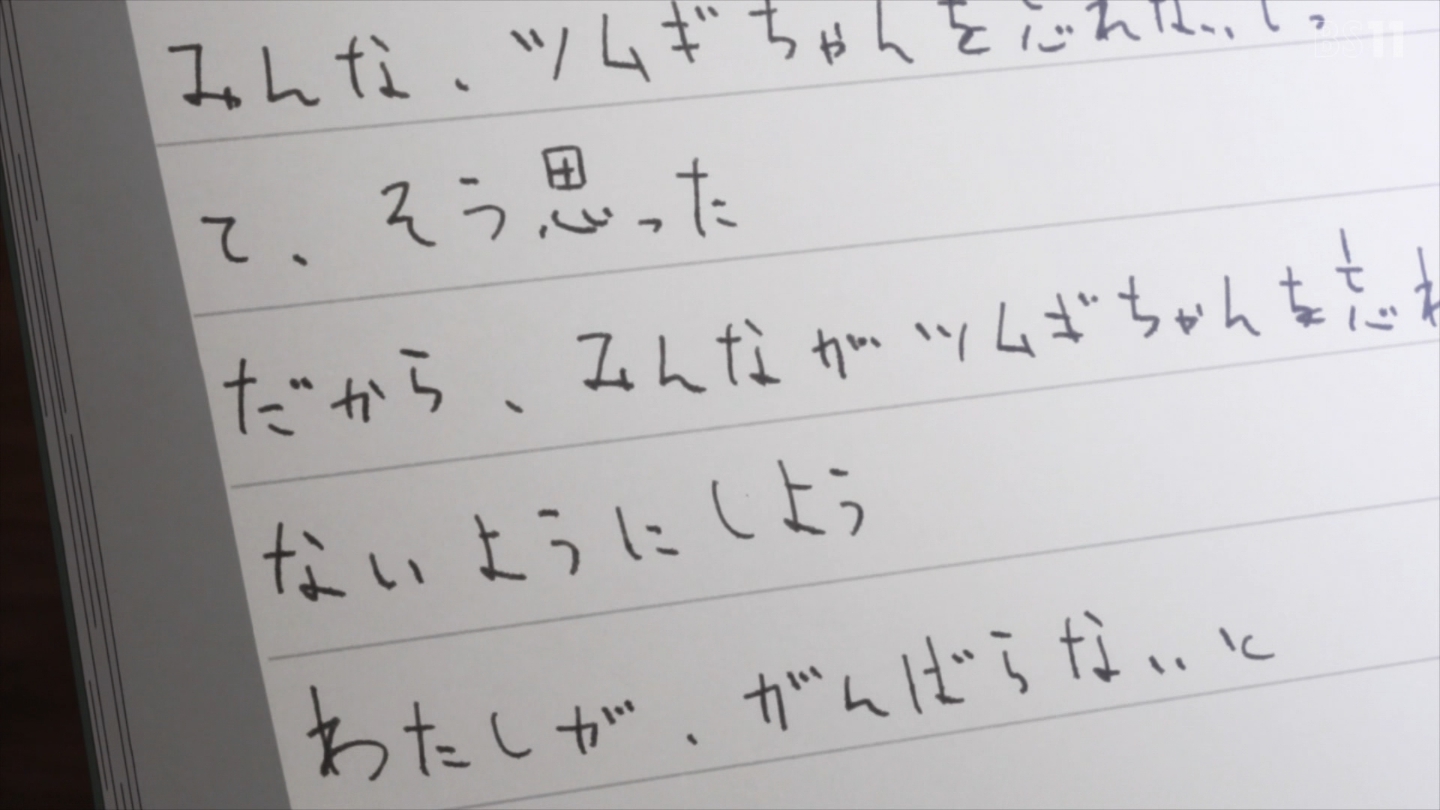 みんな、ツムぎちゃんを忘れないし
て、そう思った
だから、みんながツムぎちゃんを忘れ
ないようにしよう
わたしが、がんばらないと
BS11